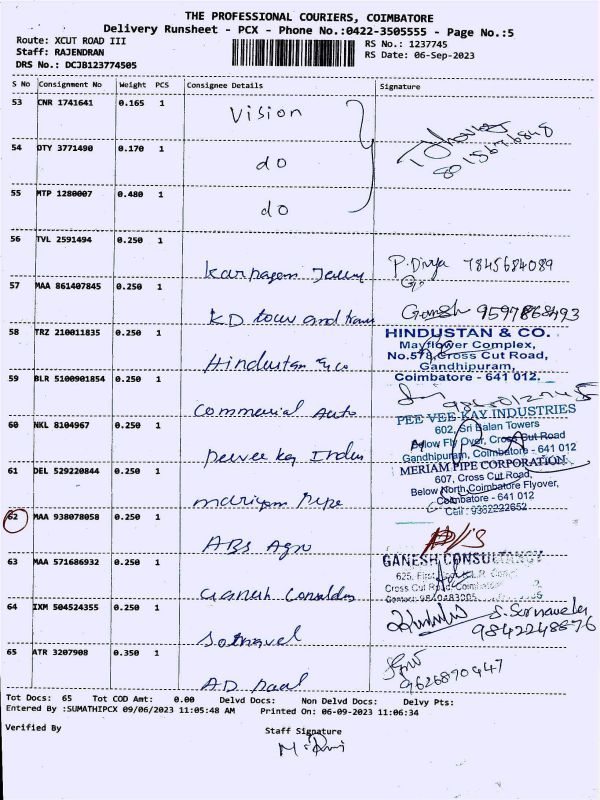 THE PROFESSIONAL COURIERS, COIMBATORE
Delivery Runsheet - PCX - Phone No.:0422-3505555 - Page No.:5
Route: XCUT ROAD III
RS No.: 1237745
Staff: RAJENDRAN
RS Date: 06-Sep-2023
DRS No.: DCJB123774505
S No Consignment No Weight PCS Consignee Details Signature
53 CNR 1741641 0.165 1 Vision
54 DTY 3771490 0.170 1 do
55 MTP 1280007 0.480 1 do
56 TVL 2591494 0.250 1
P. Divya 7845684089
57 MAA 861407845 0.250 1
KD tour and
Ganesh 9597868493
58 TRZ 210011835 0.250 1
Hindustan & co
HINDUSTAN & CO.
Mayflower Complex,
No.578, Cross Cut Road,
Gandhipuram,
Coimbatore - 641 012.
59 BLR 5100901854 0.250 1
Commercial Auto
PEE VEE KAY INDUSTRIES
602, Sri Balan Towers
Below Fly Over, Cross Cut Road
Gandhipuram, Coimbatore - 641 012
60 NKL 8104967 0.250 1
MERIAM PIPE CORPORATION
607, Cross Cut Road,
Below North Coimbatore Flyover,
Coimbatore - 641 012
Cell : 9362222652
61 DEL 529220844 0.250 1
62 MAA 938078058 0.250 1
ABS Agro
63 MAA 571686932 0.250 1
GANESH CONSULTANCY
625, First
Cross Cut Road, Coimbatore
64 IXM 504524355 0.250 1
9842248876
65 ATR 3207908 0.350 1
9626870947
AD
Tot Docs: 65 Tot COD Amt: 0.00 Delvd Docs: Non Delvd Docs: Delvy Pts:
Entered By :SUMATHIPCX 09/06/2023 11:05:48 AM Printed On: 06-09-2023 11:06:34
Verified By
Staff Signature